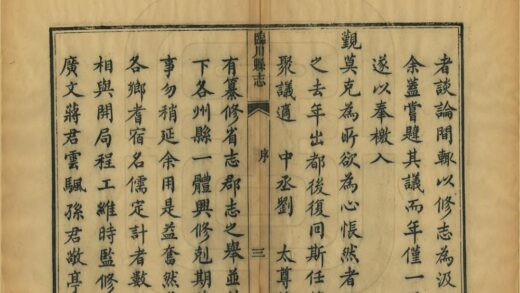 者談論間輒以修志為汲
余蓋嘗韙其議而年僅一
遂以奉檄入
覲莫克為所欲為心悵然者
之去年出都後復回斯任
聚議適 中丞劉 太尊
臨川縣志 序 三
有纂修省志郡志之舉並
下各州縣一體興修剋期
事勿稍延余用是益奮然
各鄉耆宿名儒定計者數
相與開局程工維時監修
廣文蔣君雲颿孫君亭